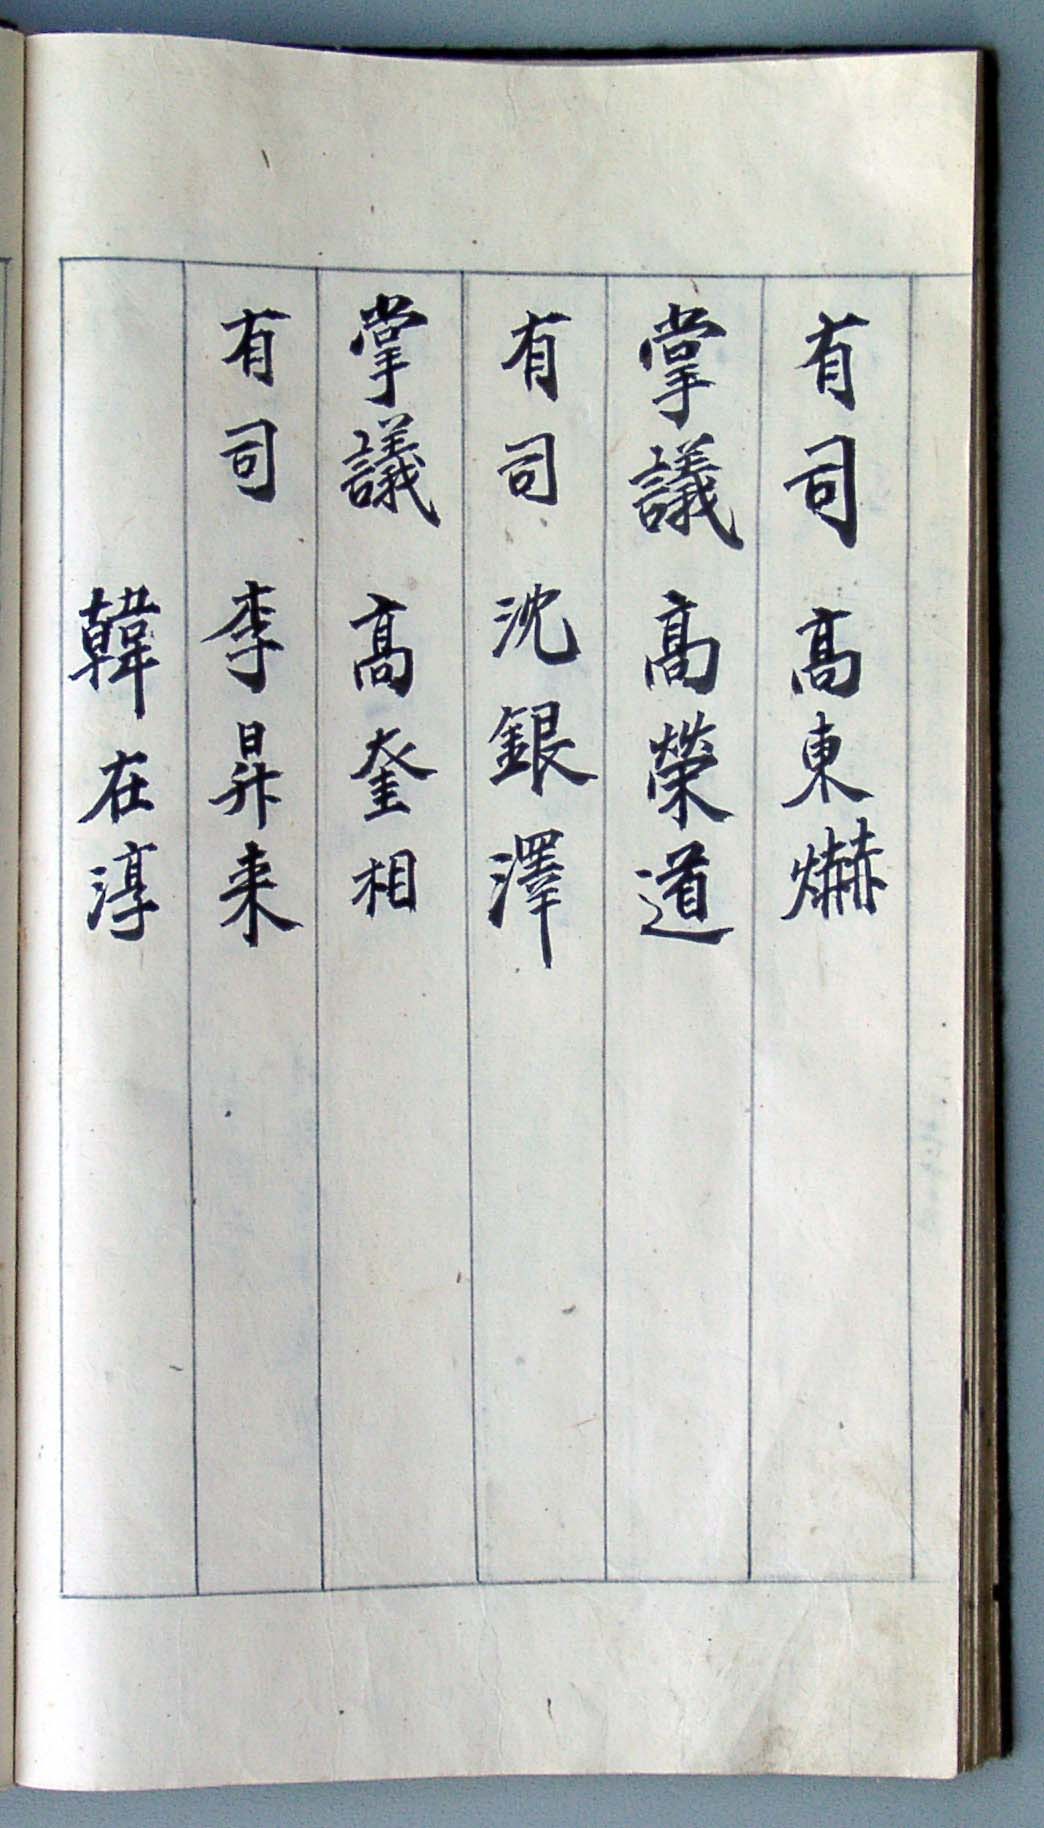 有司 高東爀
掌議 高榮道
有司 沈銀澤
掌議 高奎相
有司 李昇来
韓在淳